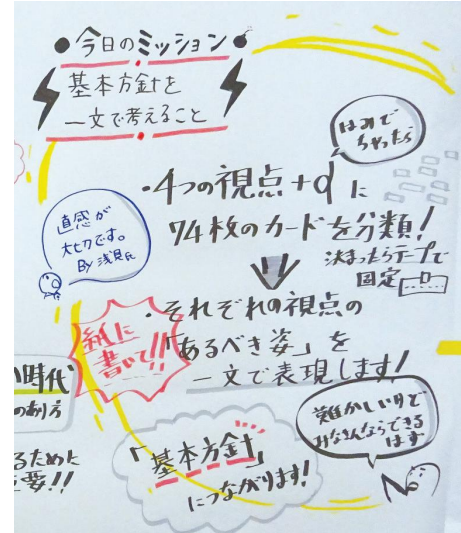 今日のミッション
基本方針を
一文で考えること
はみで
ちゃったら
・4つの視点+αに
74枚のカードを分類!
決まったらテープで
固定
直感が
大切です。
By 浅見氏
紙に
書いて!!
・それぞれの視点の
「あるべき姿」を
一文で表現します!
い時代
のあり方
るために
要!!
難かしいけど
みなさんならできる
はず
「基本方針」
につながります!